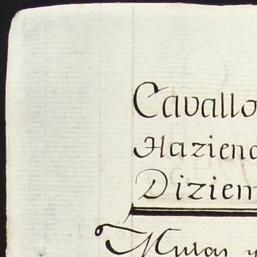 Cavallo
Haziend
Diziem
Mulas y